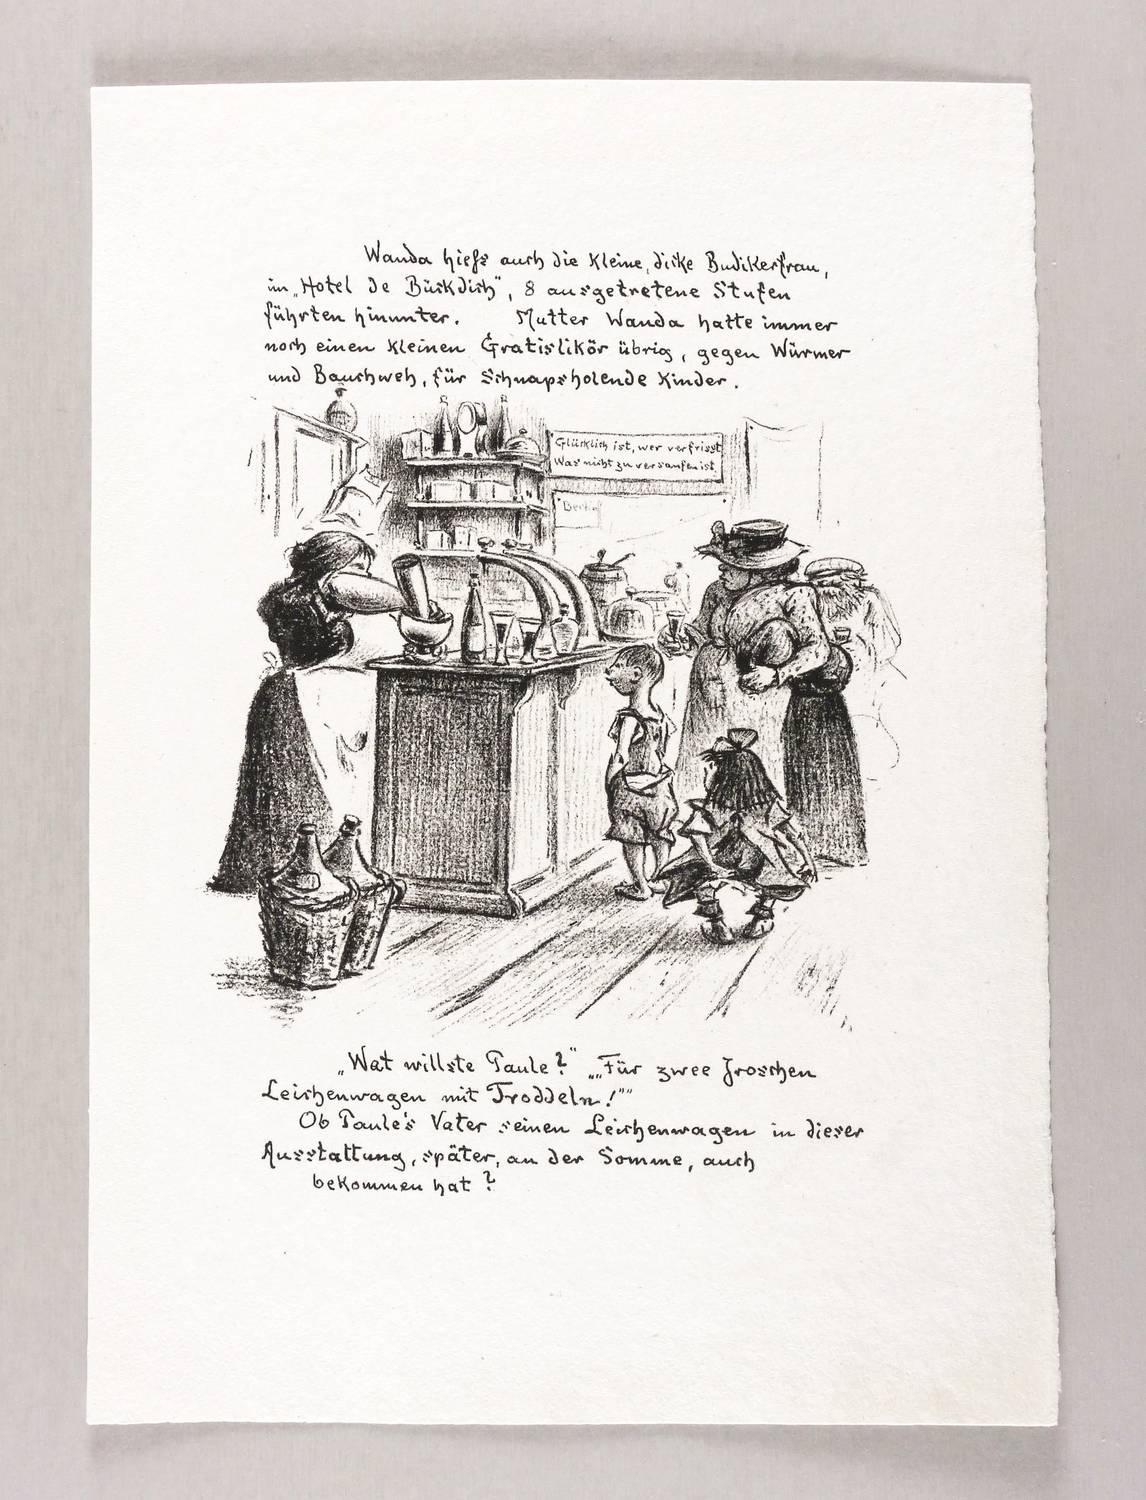 Wanda hiefs auch die Kleine, dicke Budikerfrau,
im „Hotel de Bückdich", 8 ausgetretene Stufen
führten hinunter. Mutter Wanda hatte immer
noch einen Kleinen Gratislikör übrig, gegen Würmer
und Bauchweh, für Schnapsholende Kinder.
Glücklich ist, wer verfrisst
Was nicht zu versaufen ist.
Berlin
„Wat willste Paule?" „„Für zwee Jroschen
Leichenwagen mit Troddeln!""
Ob Paule's Vater seinen Leichenwagen in dieser
Ausstattung, später, an der Somme, auch
bekommen hat?